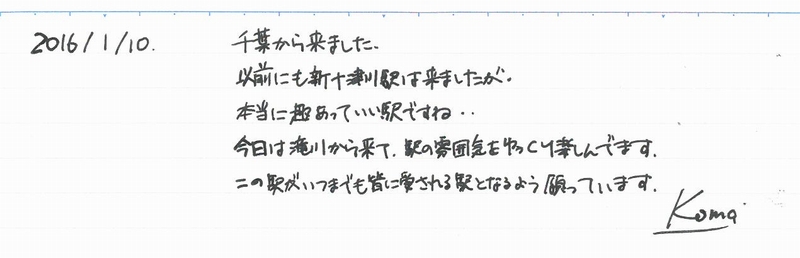 2016/1/10.
千葉から来ました.
以前にも新十津川駅は来ましたが.
本当に趣あっていい駅ですね・・
今日は滝川から来て、駅の雰囲気をゆっくり楽しんでます.
この駅がいつまでも皆に愛される駅となるよう願っています.
Komai